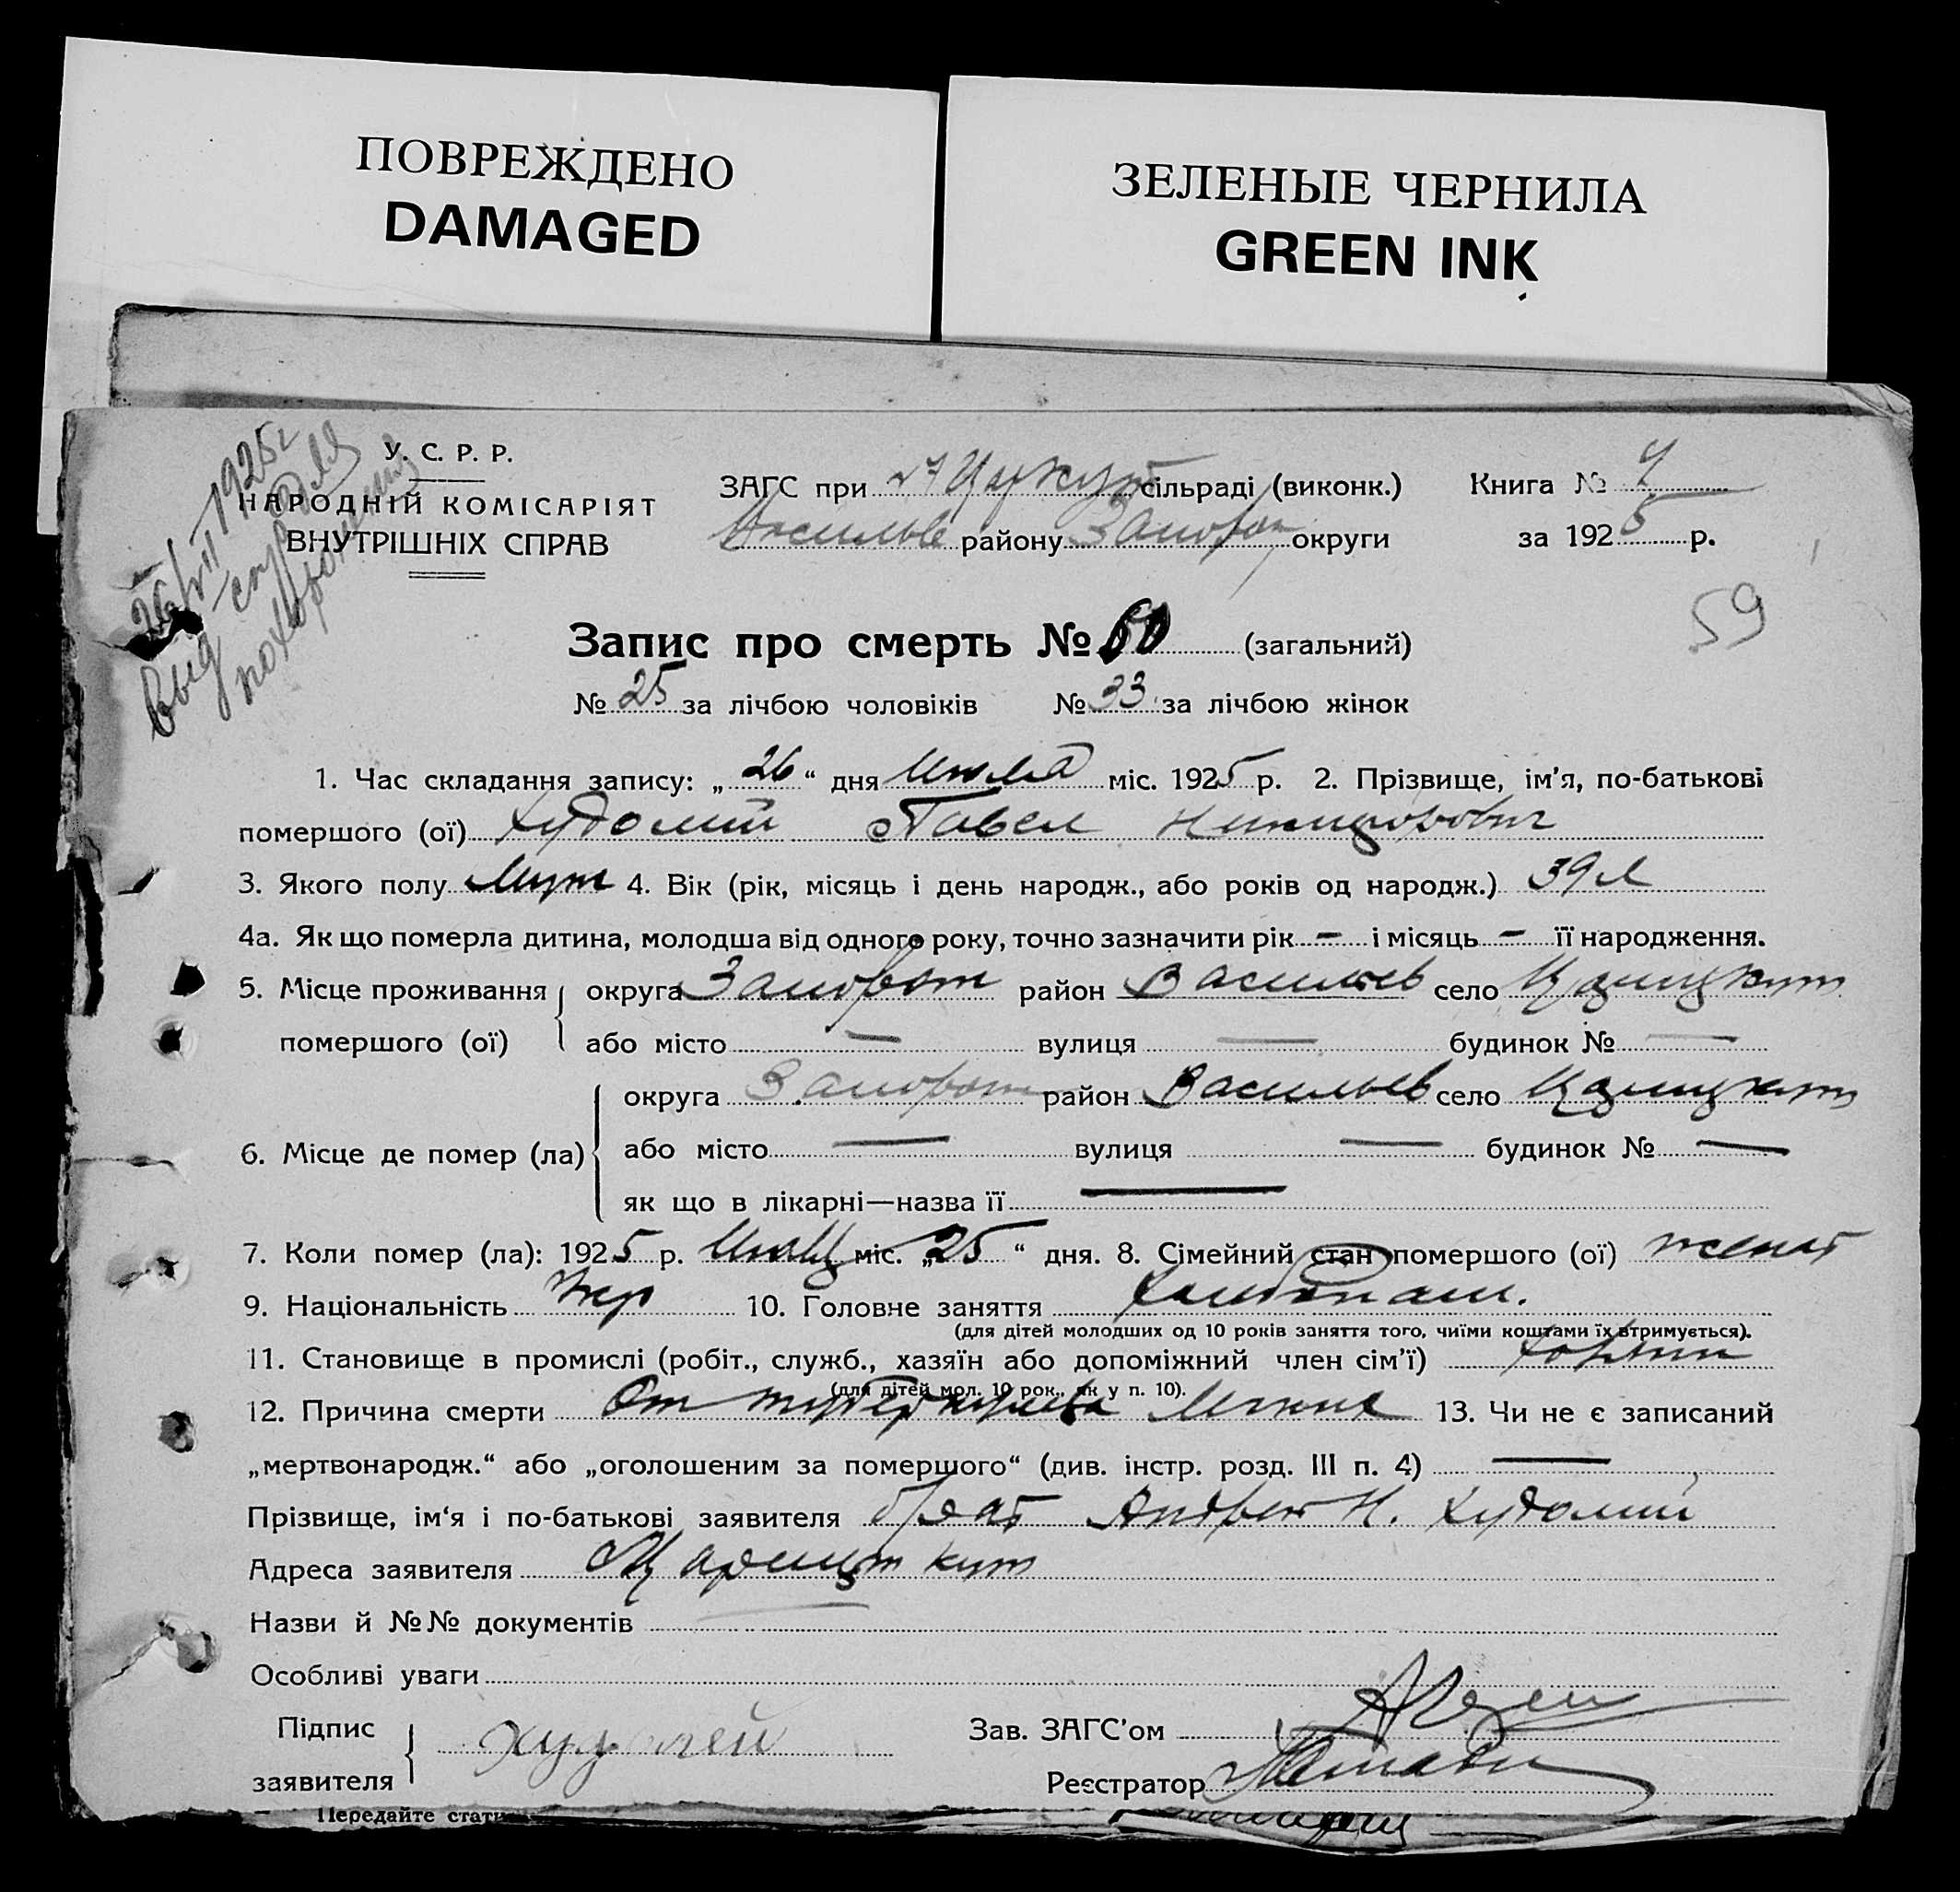 ПОВРЕЖДЕНО
DAMAGED
ЗЕЛЕНЫЕ ЧЕРНИЛА
GREEN INK
26/VII 1925 г
выд справка для
похорон
У. С. Р. Р.
НАРОДНІЙ КОМІСАРІЯТ
ВНУТРІШНІХ СПРАВ
ЗАГС при сільраді (виконк.) Книга №
Васильев району Запорож округи за 1925 р.
59
Запис про смерть № 60 (загальний)
№ 25 за лічбою чоловіків № 33 за лічбою жінок
1. Час складання запису: „26“ дня Июля міс. 1925 р. 2. Прізвище, ім’я, по-батькові
помершого (ої) Худолий Павел
3. Якого полу Муж 4. Вік (рік, місяць і день народж., або років од народж.) 39 л
4а. Як що померла дитина, молодша від одного року, точно зазначити рік – і місяць – її народження.
5. Місце проживання округа Запорож район Васильев село Царицкут
помершого (ої) або місто — вулиця — будинок № —
округа Запорож район Васильев село Царицкут
6. Місце де помер (ла) або місто — вулиця — будинок № —
як що в лікарні—назва її —
7. Коли помер (ла): 1925 р. Июль міс. „25“ дня. 8. Сімейний стан помершого (ої) женат
9. Національність Укр 10. Головне заняття Хлебопаш.
(для дітей молодших од 10 років заняття того, чиїми коштами їх втримується).
11. Становище в промислі (робіт., служб., хазяїн або допоміжний член сім’ї)
(для дітей мол. 10 рок., як у п. 10).
12. Причина смерти От туберкулеза 13. Чи не є записаний
„мертвонародж.“ або „оголошеним за помершого“ (див. інстр. розд. III п. 4) —
Прізвище, ім‘я і по-батькові заявителя брат Андрей Н. Худолий
Адреса заявителя Царицын кут
Назви й №№ документів —
Особливі уваги
Підпис
заявителя Худолей
Зав. ЗАГС’ом
Реєстратор
Передайте стати